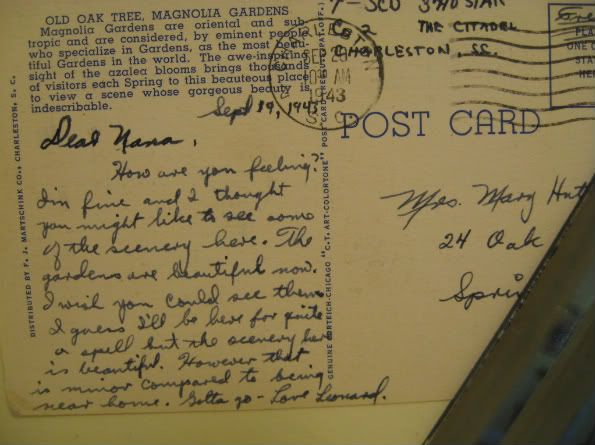 OLD OAK TREE, MAGNOLIA GARDENS
Magnolia Gardens are oriental and sub-
tropic and are considered, by eminent people
who specialize in Gardens, as the most beau-
tiful Gardens in the world. The awe-inspiring
sight of the azalea blooms brings thousands
of visitors each Spring to this beauteous place
to view a scene whose gorgeous beauty is
indescribable.
Sept 19, 1943
Dear Nana,
How are you feeling?
I'm fine and I thought
you might like to see some
of the scenery here. The
gardens are beautiful now.
I wish you could see them.
I guess I'll be here for quite
a spell but the scenery here
is beautiful. However that
is minor compared to being
near home. Gotta go - Love Leonard.
DISTRIBUTED BY F. J. MARTSCHINK CO., CHARLESTON, S. C.
GENUINE CURTEICH-CHICAGO "C.T. ART-COLORTONE" POST CARD (REG. U.S. PAT. OFF.)
THE CITADEL
CHARLESTON, SC.
SEP 20
AM
1943
POST CARD
Mrs. Mary
24 Oak